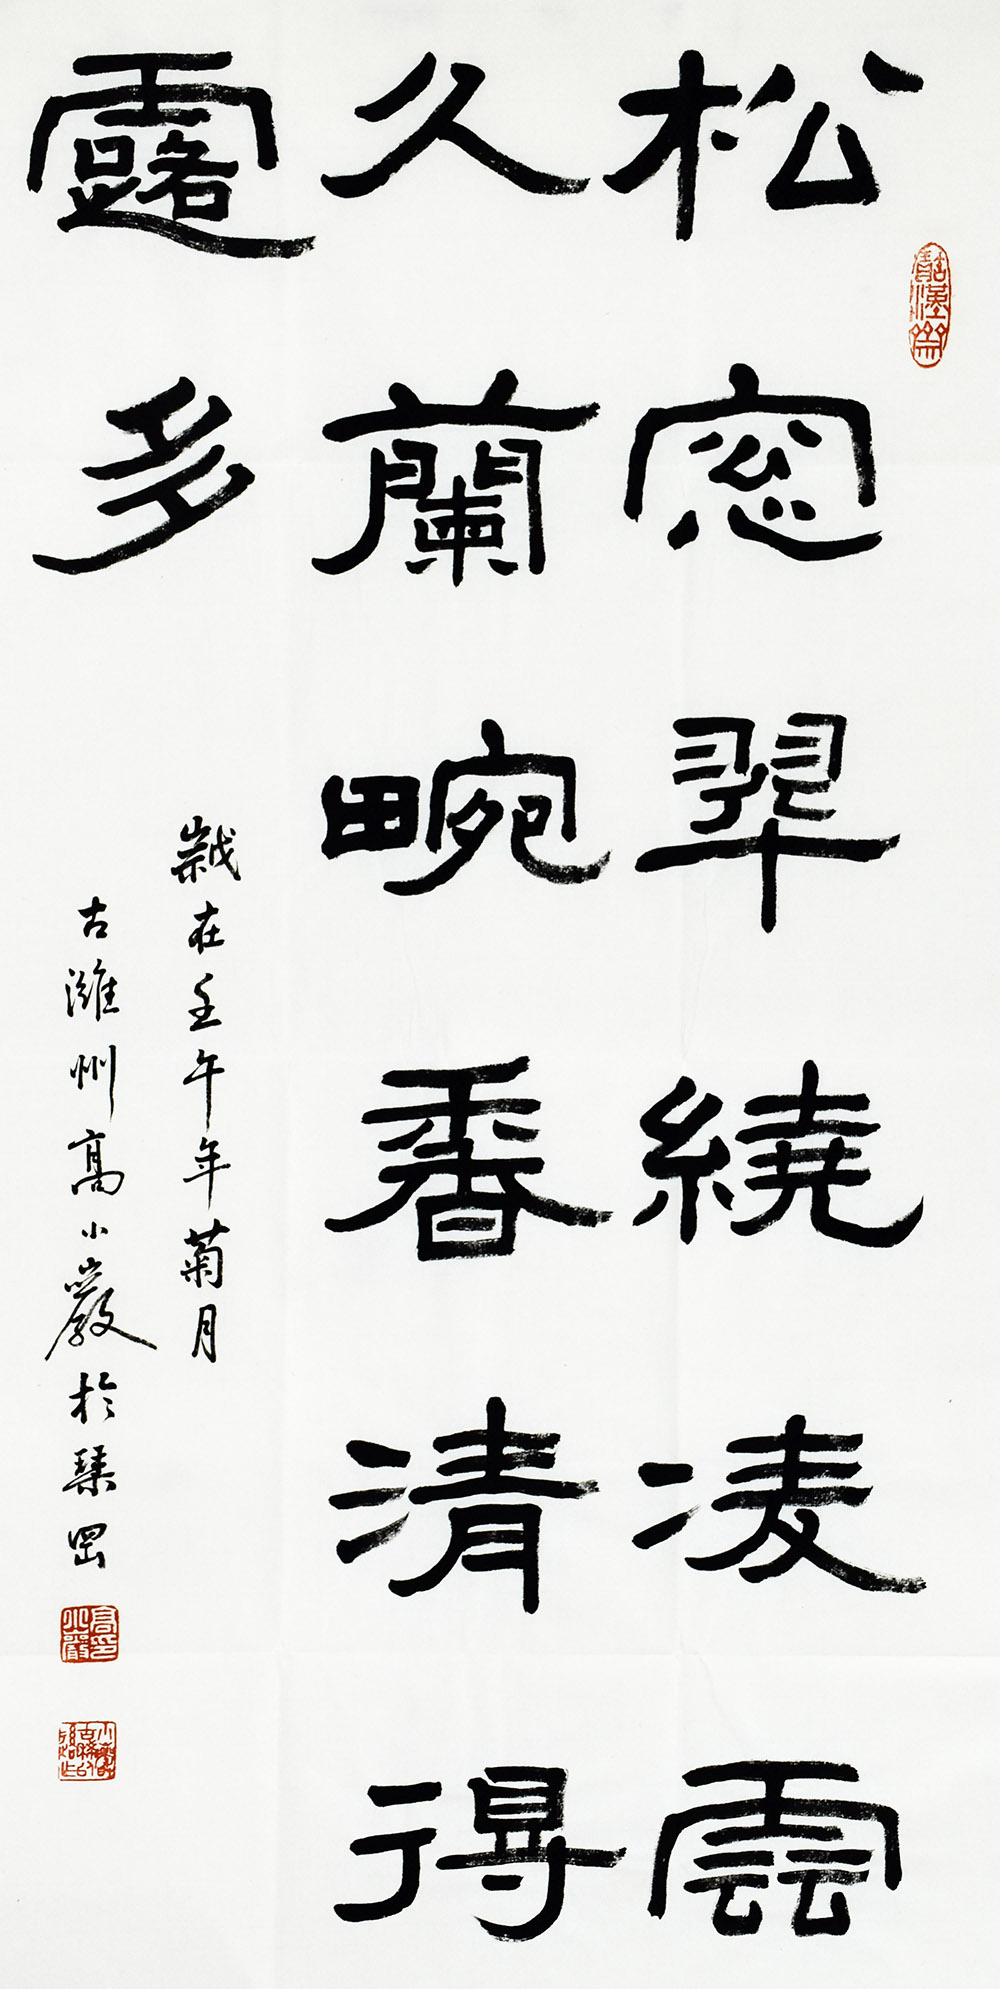 松窓翠繞凌雲
久蘭畹香清得
露多
歲在壬午年菊月
古濰州高小巖於琹罡